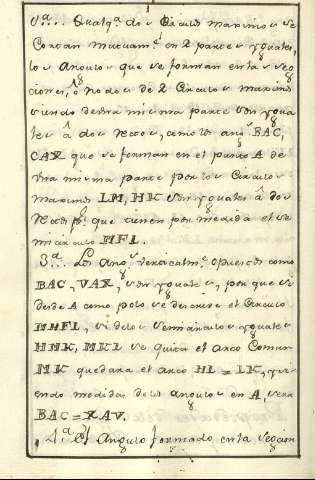 Qualq.ª dos Circulos maximos se
Cortan mutuam.te en 2 partes yguales,
los Angulos que se forman en las sec
ciones, ó Nodos de 2 Circulos maximos
siendo de una misma parte son ygua
les â dos Rectos, como los ang.s BAC,
CAX que se forman en el punto A de
una misma parte por los Circulos
maximos LM, HK son yguales â dos
Rectos p.r que tienen por medida el se
micirculo MFI.
3.ª... Los Ang.s verticalm.e opuestos como
BAC, VAX, son yguales, por que si
desde A como polo se descrive el Circulo
MHFI, si de los semicirculos yguales
HMK, MKI se quita el Arco Comun
MK quedara el Arco HI = IK, y si
endo medidas de los angulos en A, sera
BAC = XAV.
4.ª El Angulo formado en la Seccion